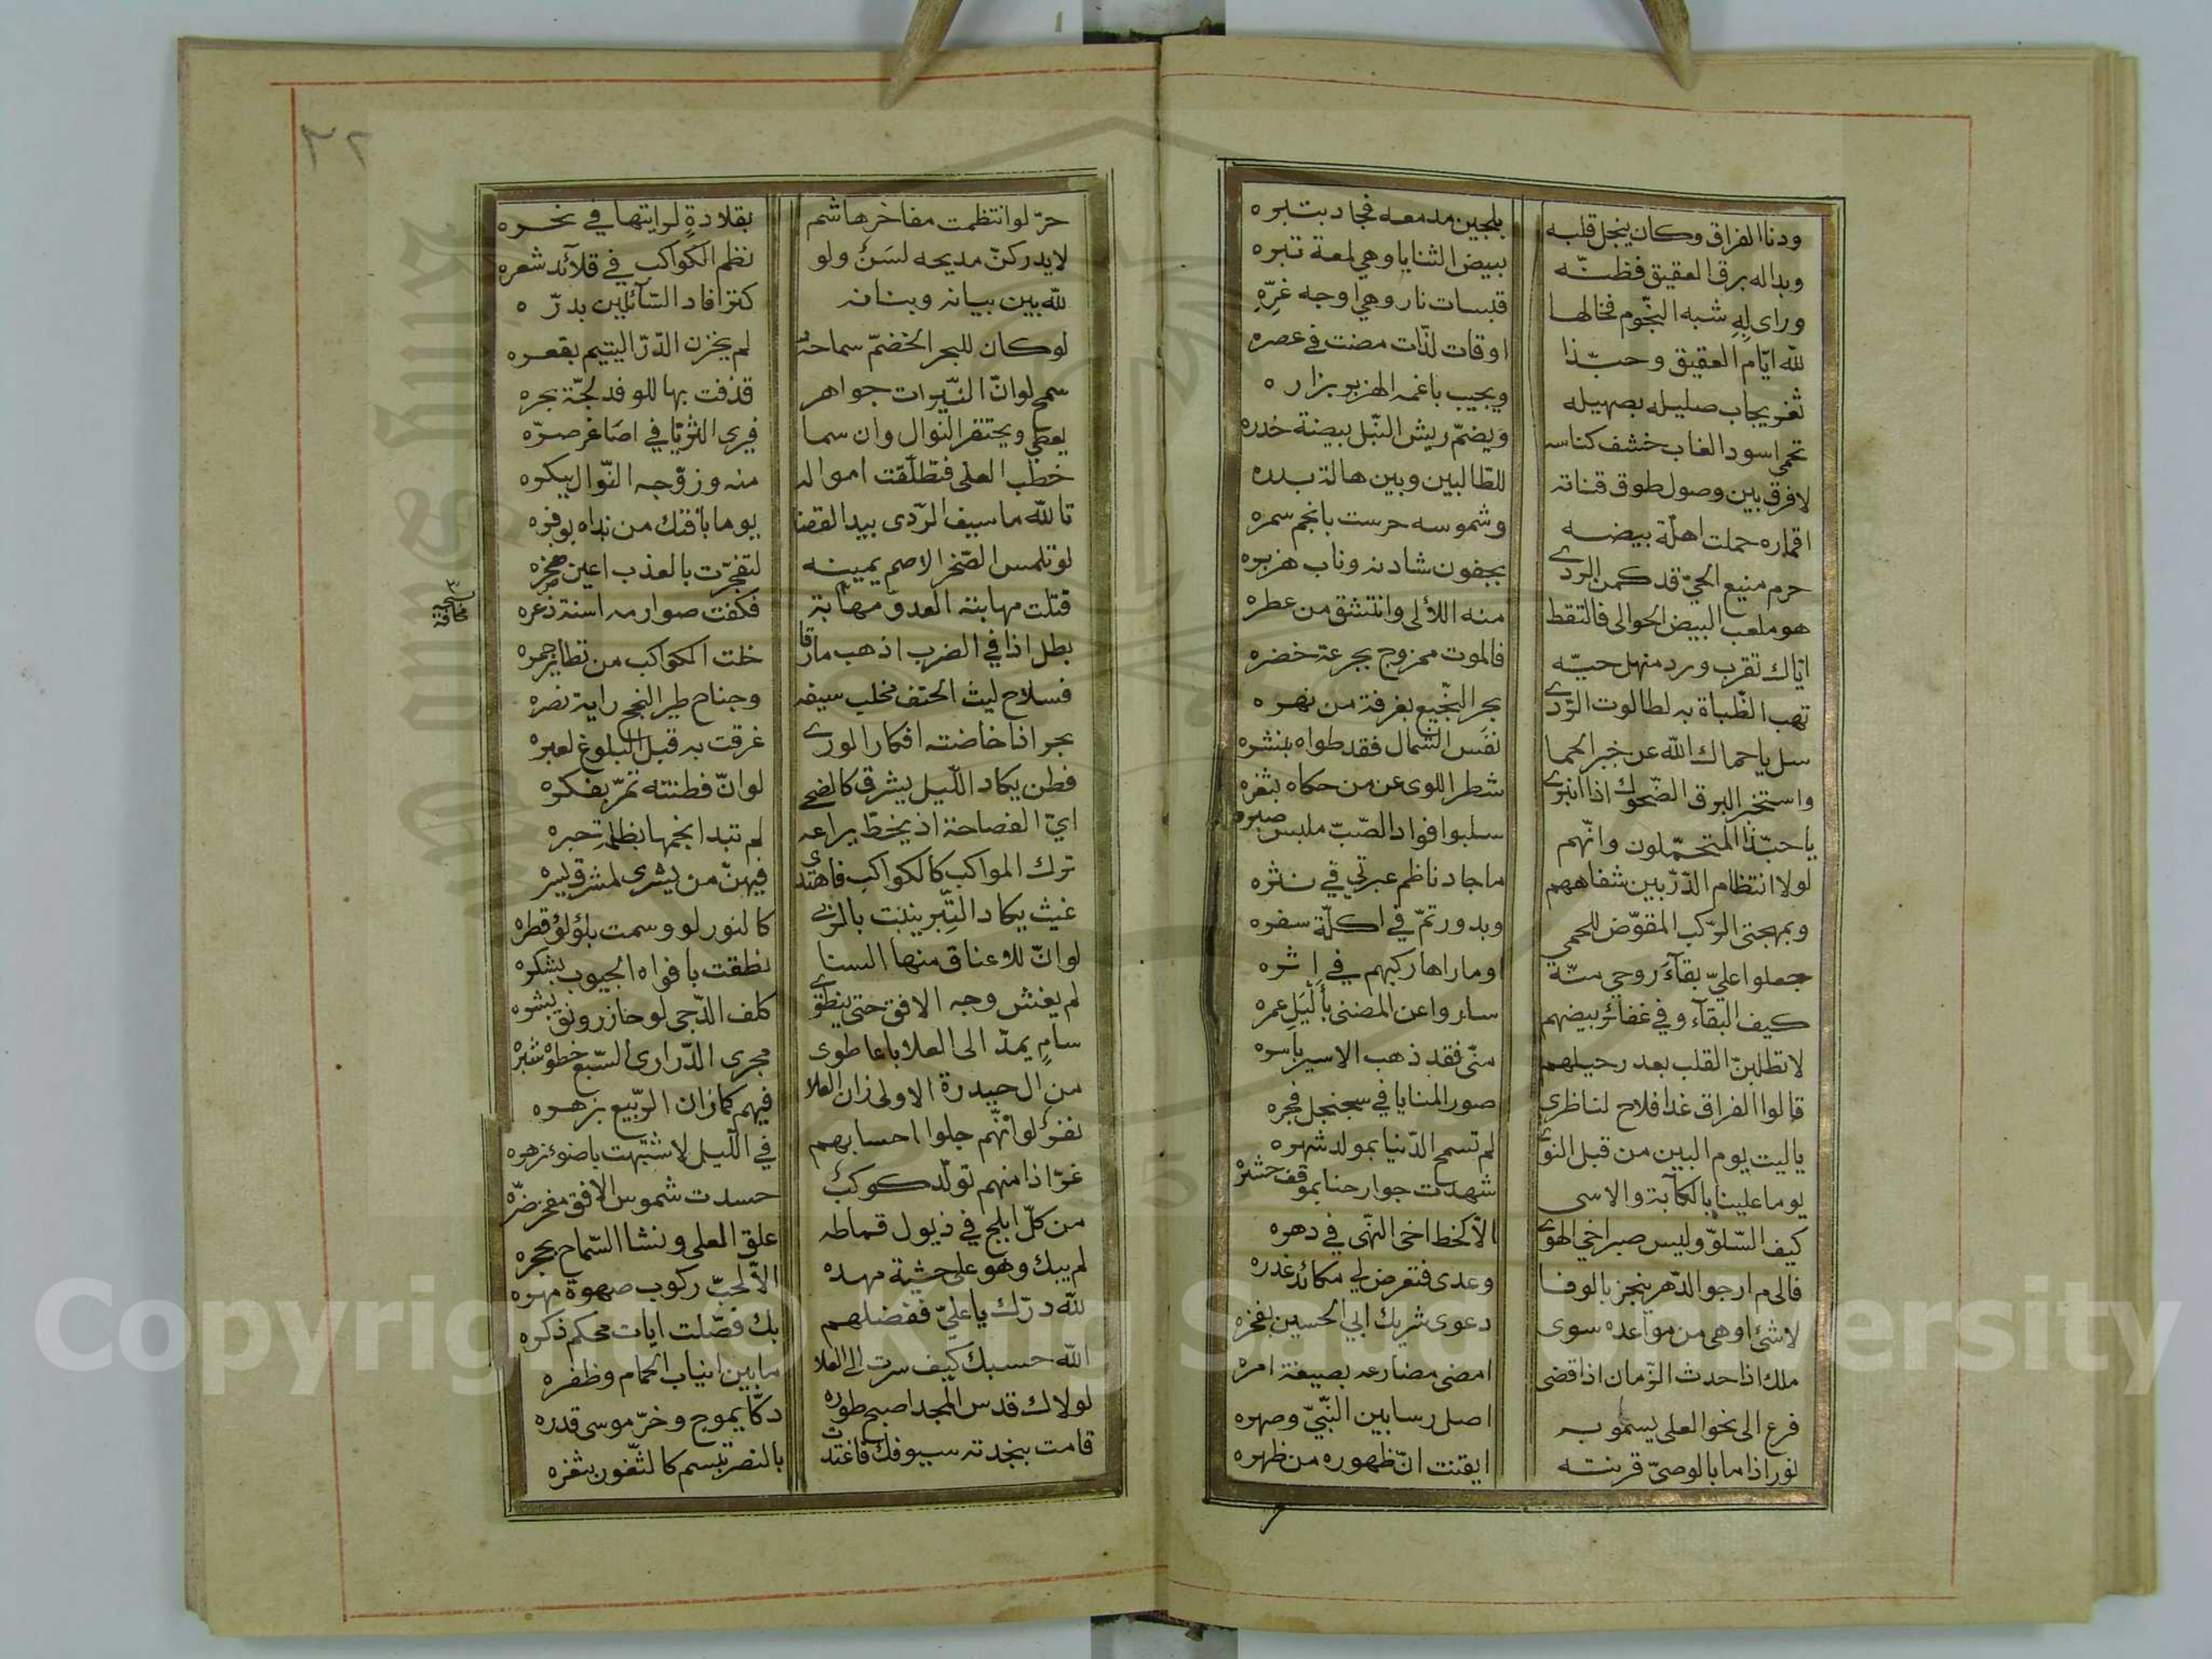 ودنا الفراق وكان ينجل قلبه بلجين مدمعه فجاد بتبره
وبدا له برق العقيق فظنّه ببيض الثنايا وهي لمعة تبره
وراى به شبه النجوم فخالها قبسات نار وهي اوجه غرّه
لله ايّام العقيق وحبّذا اوقات لذّات مضت في عصره
ثغر يجاب صليله بصهيله ويجيب باغمه الهزبر بزاره
تحمي اسود الغاب خشف كناسه ويضمّ ريش النبل بيضة خدره
لا فرق بين وصول طوق قناته للطالبين وبين هالة بدره
اقماره حملت اهلّة بيضه وشموسه حرست بانجم سمره
حرم منيع الحيّ قد كمن الردى بجفون شادنه وناب هزبره
هو ملعب البيض الحوالى فالتقط منه اللألى وانتشق من عطره
اياك تقرب ورد منهل حيّه فالموت ممزوج بجرعة خضره
تهب الظباة به لطالوت الردى بحر النجيع بغرفة من نهره
سل يا حماك الله عن خبر الحما نفس الشمال فقد طواه بنشره
واستخبر البرق الضحوك اذا انبرى شطر اللوى عن من حكاه بثغره
يا حبّذا المتحمّلون وانّهم سلبوا فواد الصبّ ملبس صبره
لولا انتظام الدّرّ بين شفاههم ما جاد ناظم عبرتي في نثره
وبمهجتى الركب المقوّض للحمى وبدور تمّ في اكلّة سفره
جعلوا عليّ بقآء روحي منّة اوما راها ركبهم في اثره
كيف البقآء وفي غفائر بيضهم ساروا عن المضنى باليل عمره
لا تطلبنّ القلب بعد رحيلهم منّى فقد ذهب الاسير باسره
قالوا الفراق غدا فلاح لناظرى صور المنايا في سجنجل فجره
ياليت يوم البين من قبل النوى لم تسمح الدّنيا بمولد شهره
يوما علينا بالكآبة والاسى شهدت جوارحنا بموقف حشره
كيف السّلوّ وليس صبر اخي الهوى الاّ كخط اخى النهى في دهره
فالى م ارجو الدّهر ينجز بالوفا وعدى فتعرض لي مكائد غدره
لا شئ اوهى من مواعده سوى دعوى شريك ابي الحسين بفخره
ملك اذا حدث الزّمان اذا قضى امضى مضارعه بصيغة امره
فرع الى نحو العلى يسمو به اصل رسا بين النّبيّ وصهره
نور اذا ما بالوصيّ قرنته ايقنت انّ ظهوره من ظهره
٣٢
حرّ لو انتظمت مفاخر هاشم بقلادة لرايتها في نحره
لا يدركنّ مديحه لسن ولو نظم الكواكب في قلآئد شعره
لله بين بيانه وبنانه كنز افاد السّآئلين بدرّه
لو كان للبحر الخضمّ سماحة لم يخزن الدّرّ اليتيم بقعره
سمح لو انّ النيّرات جواهر قذفت بها للوفد لجّة بحره
يعطي ويحتقر النوال وان سما فيرى الثريّا في اصاغر صرّه
خطب العلى فتطلّقت امواله منه وزوّجه النّوال ببكره
تالله ما سيف الرّدى بيد القضا يوما بافتك من نداه بوفره
لو تلمس الصّخر الاصم يمينه لتفجّرت بالعذب اعين صخره
قتلت مهابته العدوّ مهابة فكفت صوارمه اسنة ذعره
مخافة
بطل اذا في الضرب اذهب مارقا خلت الكواكب من تطاير جمره
فسلاح ليث الحتف مخلب سيفه وجناح طير النجح راية نصره
بحر اذا خاضته افكار الورى غرقت به قبل البلوغ لعبره
فطن يكاد اللّيل يشرق كالضحى لو انّ فطنته تمرّ بفكره
ايّ الفصاحة اذ يخطّ يراعه لم تبد انجمها بظلمة حبره
ترك المواكب كالكواكب فاهتدى فيهنّ من يشرى لمشرق ليسره
غيث يكاد التّبر ينبت بالربى كالنور لو وسمت بلؤلؤ قطره
لو انّ للاعناق منها السنا نطقت بافواه الجيوب بشكره
لم يغش وجه الافق حتى ينطوى كلف الدّجى لو حاز رونق بشره
سامٍ يمدّ الى العلا باعا طوى مجرى الدّرارى السّبع خطوة شبره
من ال حيدرة الاولى زان العلا فيهم كما زان الرّبيع بزهره
نفر لو انّهم جلوا احسابهم في اللّيل لاشتبهت باضوء زهره
غرّ اذا منهم تولّد كوكب حسدت شموس الافق مفخر ضرّه
من كلّ ابلج في ذيول قماطه علق العلى ونشا السّماح بحجره
لم يبك وهو على حشيّة مهده الاّ لحبّ ركوب صهوة مهره
لله درّك يا عليّ ففضلهم بك فصّلت ايات محكم ذكره
الله حسبك كيف سرت الى العلا ما بين انياب الحمام وظفره
لولاك قدس المجد اصبح طوره دكّا يموج وخرّ موسى قدره
قامت بنجدته سيوفك فاغتدت بالنصر تبسم كالثغور بثغره
Copyright © King Saud University